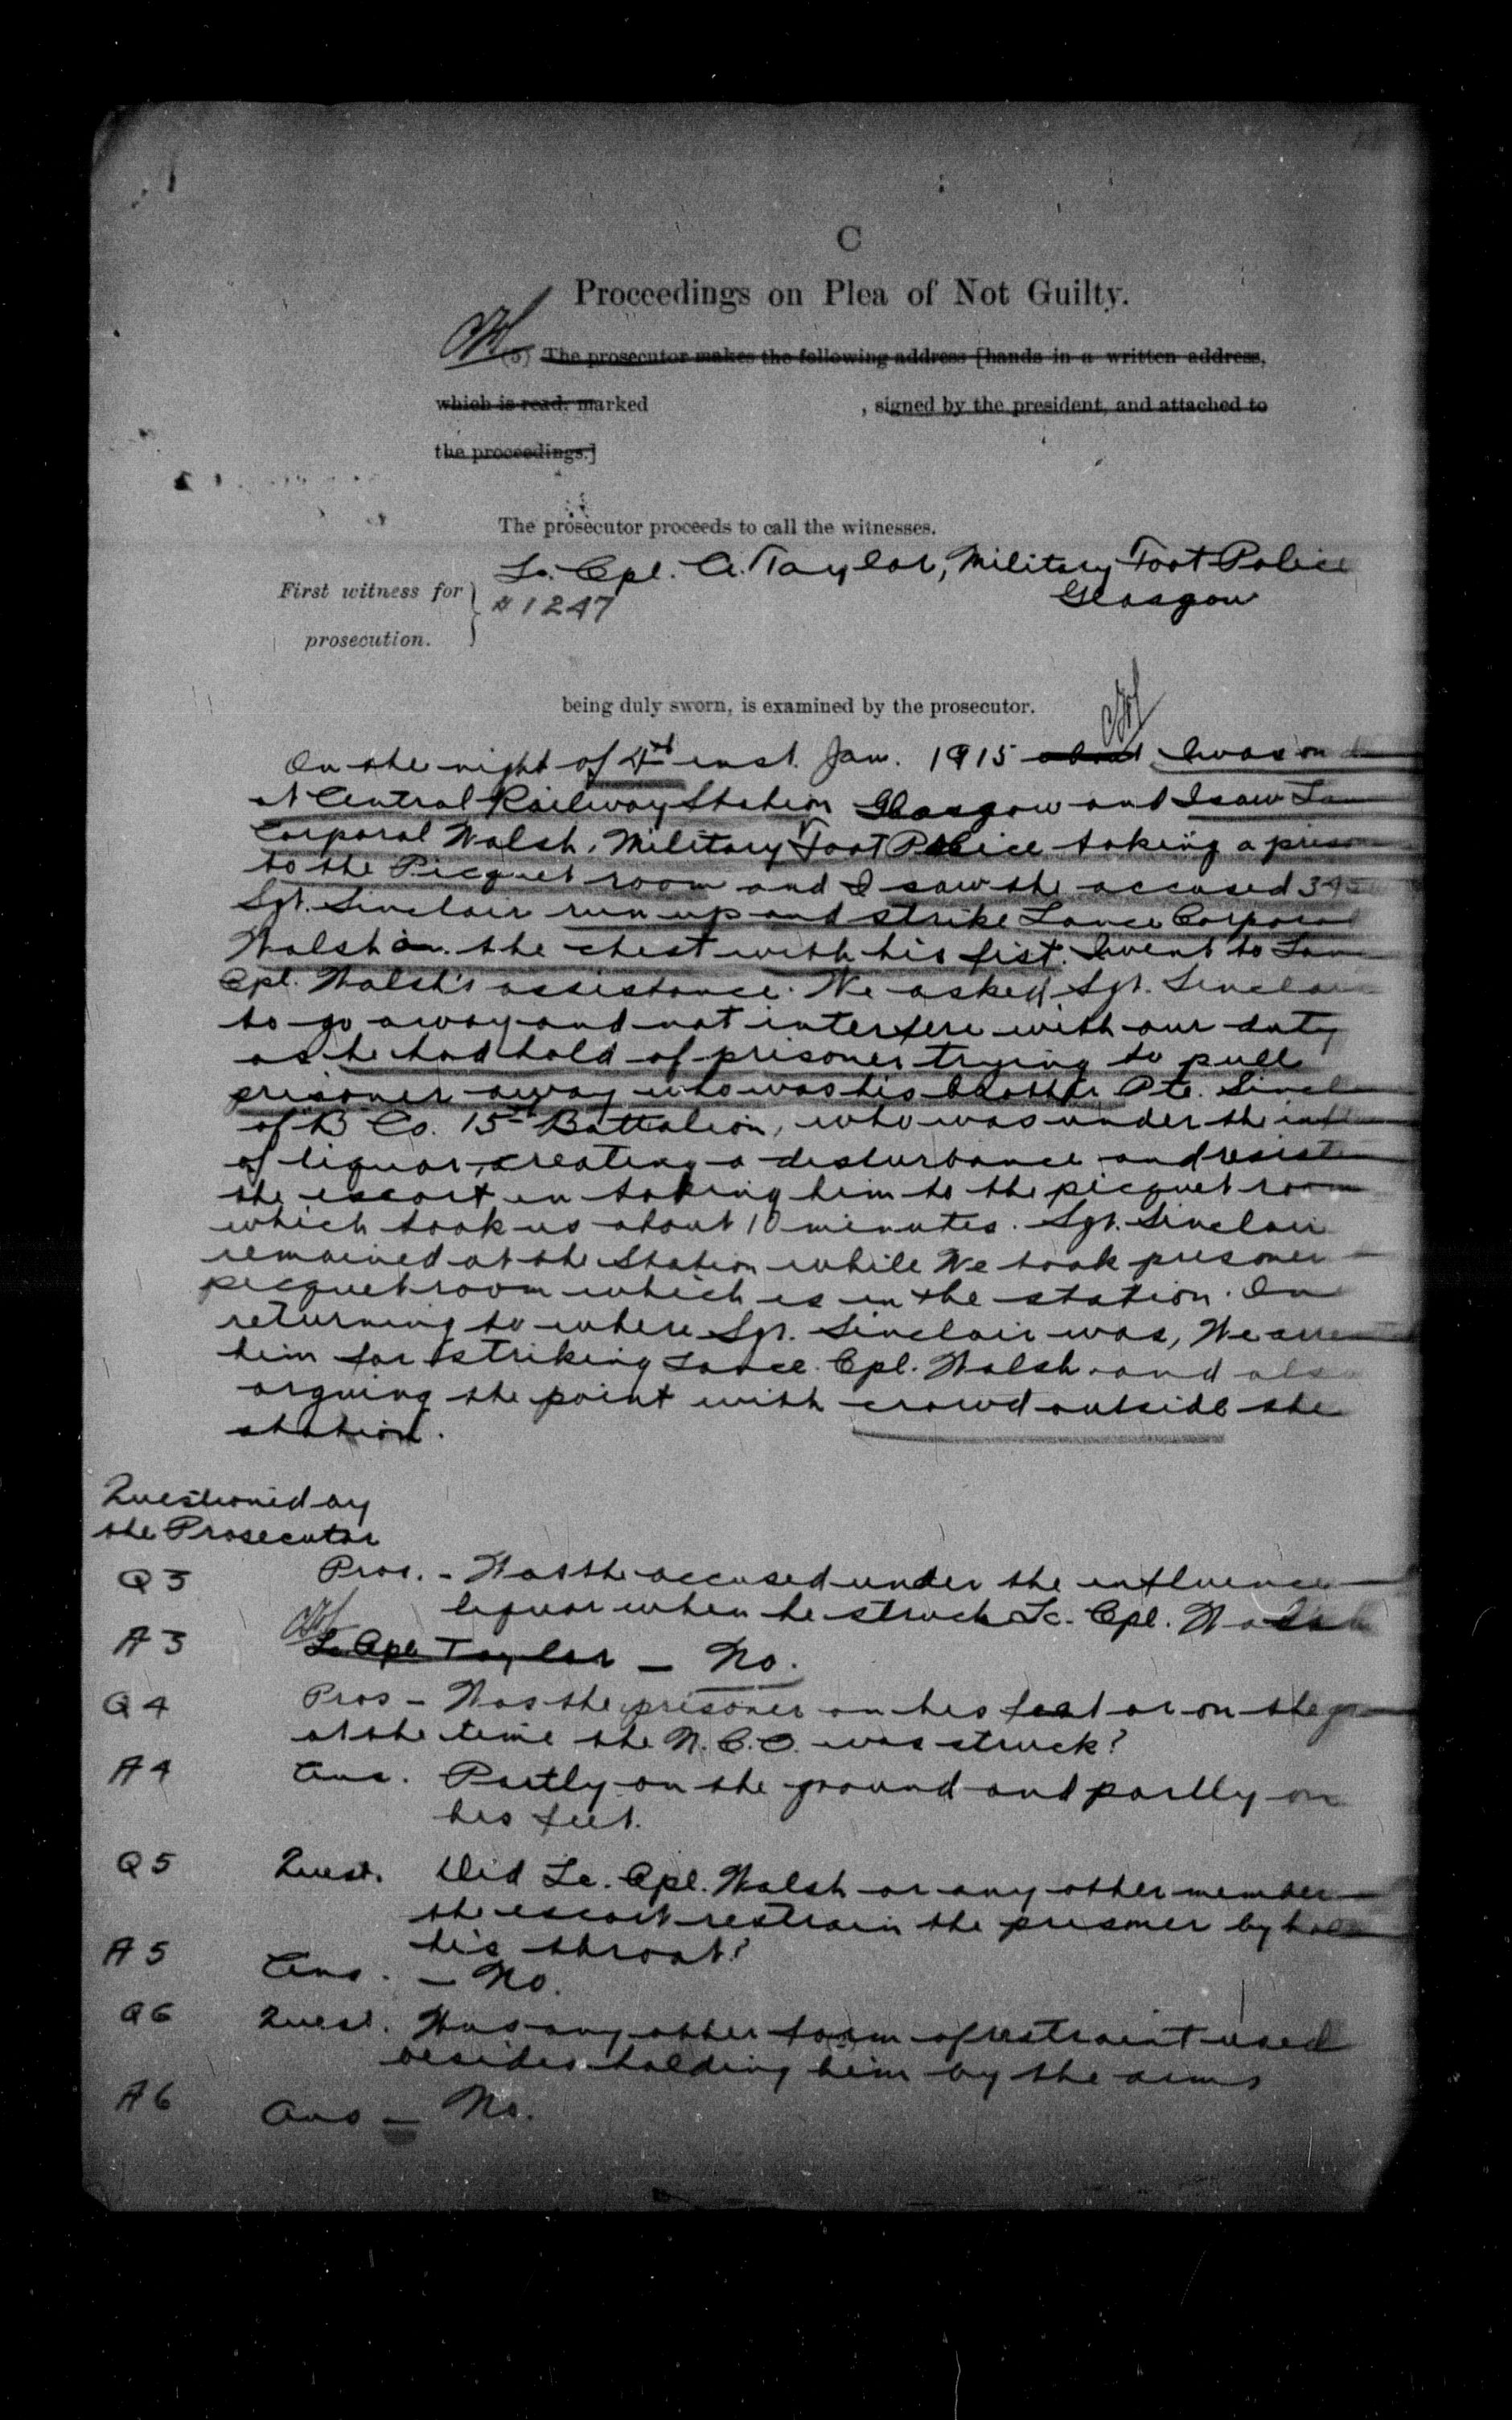 C
Proceedings on Plea of Not Guilty.
(5) The prosecutor makes the following address [hands in a written address,
which is read, marked , signed by the president, and attached to
the proceedings.]
The prosecutor proceeds to call the witnesses.
First witness for
prosecution.
Lc. Cpl. A. Taylor, Military Foot Police
# 1247
Glasgow
being duly sworn, is examined by the prosecutor.
On the night of 4th inst. Jan. 1915 about I was on
at Central Railway Station Glasgow and I saw
Corporal Walsh, Military Foot Police taking a
to the Picquet room and I saw the accused
Sgt. Sinclair run up and strike Lance Corporal
Walsh on the chest with his fist. I went to
Cpl. Walsh's assistance. We asked Sgt. Sinclair
to go away and not interfere with our duty
as he had hold of prisoner trying to pull
prisoner away who was his brother Pte.
of B Co. 15th Battalion, who was under the
of liquor, creating a disturbance and
the escort in taking him to the picquet room
which took us about 10 minutes. Sgt. Sinclair
remained at the Station while We took prisoner
picquet room which is in the station. On
returning to where Sgt. Sinclair was, We
him for striking Lance Cpl. Walsh and also
arguing the point with crowd outside the
station.
Questioned by
the Prosecutor
Q 3 Pros. - Was the accused under the influence
liquor when he struck Lc. Cpl. Walsh
A 3 Lc Cpl Taylor - No.
Q 4 Pros - Was the prisoner on his feet or on the
at the time the N.C.O. was struck?
A 4 Ans. Partly on the ground and partly on
his feet.
Q 5 Quest. Did Lc. Cpl. Walsh or any other member
the escort restrain the prisoner by
his throat?
A 5 Ans. - No.
Q 6 Quest. Was any other form of restraint used
besides holding him by the arms
A 6 Ans - No.